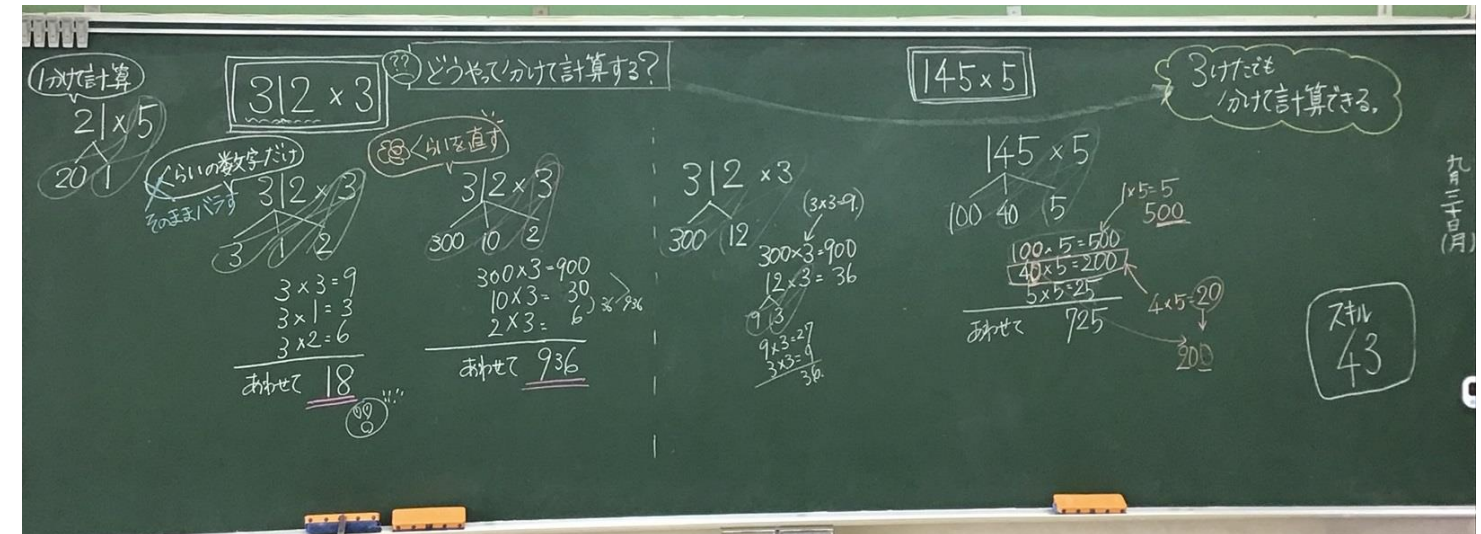 分けて計算
21×5
20 1
312×3
??
どうやって分けて計算する?
くらいの数字だけ
そのままバラす
312×3
3 1 2
3×3=9
3×1=3
3×2=6
あわせて 18
くらいを直す
312×3
300 10 2
300×3=900
10×3= 30
2×3= 6
36 936
あわせて 936
312×3
300 12
(3×3=9.)
300×3=900
12×3= 36
9 3
9×3=27
3×3=9
36.
145×5
145×5
100 40 5
1×5=5
500
100×5=500
40×5=200
5×5=25
あわせて 725
4×5=20
200
3けたでも
分けて計算できる。
スキル
43
九月三十日(月)